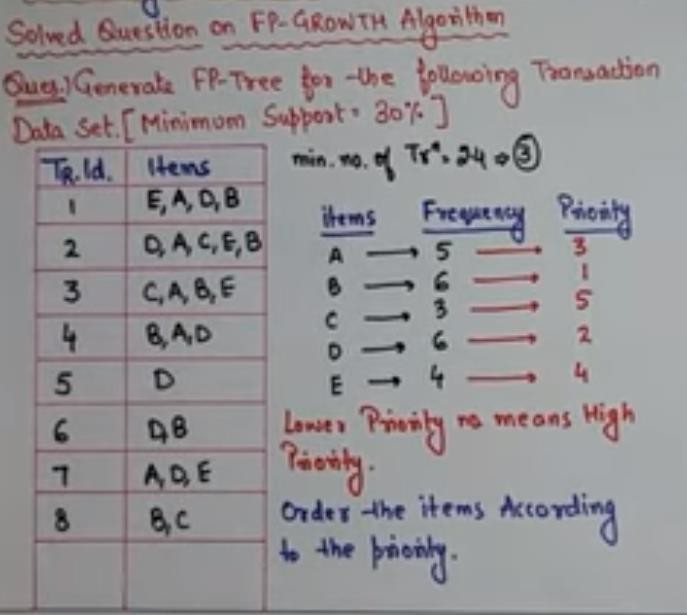 Solved Question on FP-GROWTH Algorithm
Ques.) Generate FP-Tree for the following Transaction
Data Set. [Minimum Support = 30%]
TR.Id. Items
1 E, A, D, B
2 D, A, C, E, B
3 C, A, B, E
4 B, A, D
5 D
6 D, B
7 A, D, E
8 B, C
min. no. of Trⁿ = 2.4 ⇒ 3
items Frequency Priority
A → 5 → 3
B → 6 → 1
C → 3 → 5
D → 6 → 2
E → 4 → 4
Lower Priority no means High
Priority.
Order the items According
to the priority.